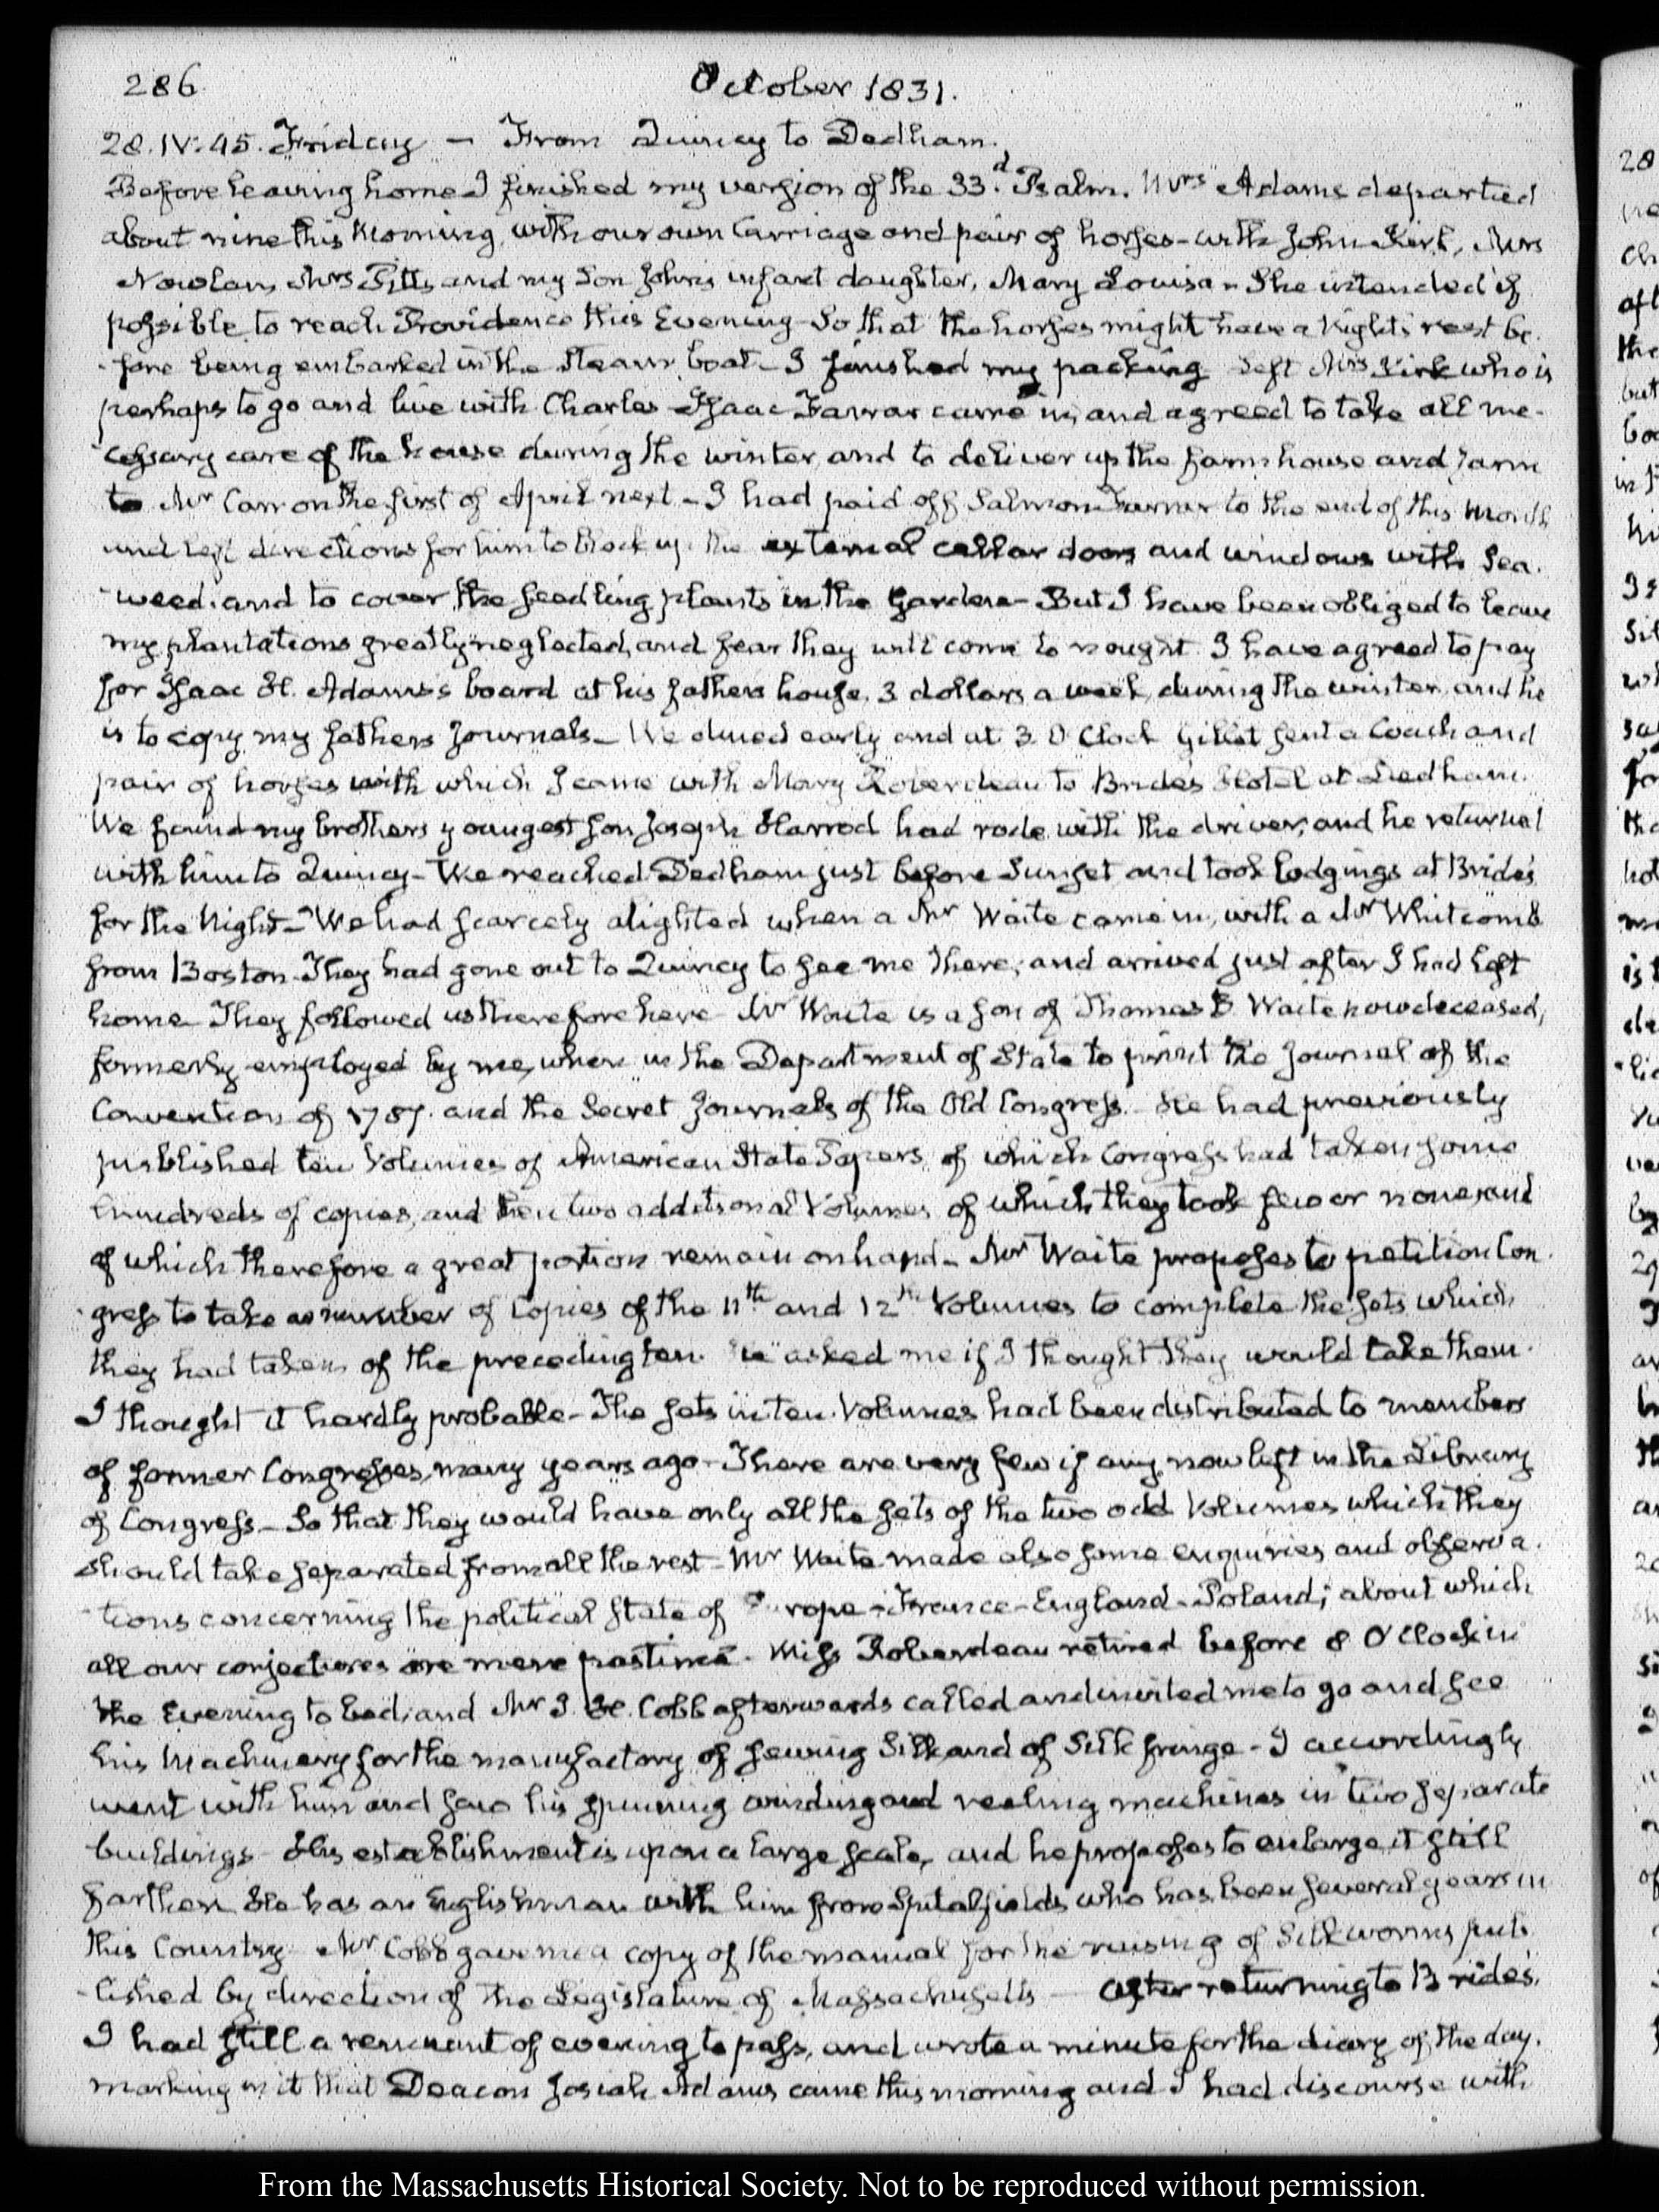 286
October 1831.
28. IV:45. Friday – From Quincy to Dedham.
Before leaving home I finished my version of the 33.d Psalm. Mrs Adams departed
about nine this Morning, with our own Carriage and pair of horses – with John Kirk, Mrs
Nowlan, Mrs Pitts and my Son John's infant daughter, Mary Louisa – She intended if
possible to reach Providence this Evening – So that the horses might have a Nights rest be-
-fore being embarked in the Steam boat – I finished my packing Left Mrs Kirk who is
perhaps to go and live with Charles – Isaac Farrar came in, and agreed to take all ne-
-cessary care of the house during the winter, and to deliver up the farm house and farm
to Mr Carr on the first of April next – I had paid off Salmon Farmer to the end of this Month
and left directions for him to block up the external cellar doors and windows with Sea-
-weed. and to cover the seedling plants in the Garden – But I have been obliged to leave
my plantations greatly neglected, and fear they will come to nought. I have agreed to pay
for Isaac H. Adams's board at his father's house, 3 dollars a week, during the winter, and he
is to copy my father's Journals – We dined early and at 3. O'Clock Gillet sent a Coach and
pair of horses with which I came with Mary Roberdeau to Bride's Hotel at Dedham.
We found my brother's youngest son Joseph Harrod had rode with the driver, and he returned
with him to Quincy – We reached Dedham just before Sunset and took lodgings at Bride's
for the Night – We had scarcely alighted when a Mr Waite came in, with a Mr Whitcomb
from Boston – They had gone out to Quincy to see me there, and arrived just after I had left
home They followed us therefore here – Mr Waite is a son of Thomas B. Waite now deceased,
formerly employed by me, when in the Department of State to print the Journal of the
Convention of 1787. and the Secret Journals of the Old Congress. He had previously
published ten Volumes of American State Papers, of which Congress had taken some
hundreds of copies, and then two additional Volumes of which they took few or none, and
of which therefore a great portion remain on hand – Mr Waite proposes to petition Con-
-gress to take a number of Copies of the 11th and 12th Volumes to complete the sets which
they had taken of the preceding ten. He asked me if I thought they would take them.
I thought it hardly probable – The sets in ten Volumes had been distributed to members
of former Congresses, many years ago – There are very few if any, now left in the Library
of Congress – So that they would have only all the sets of the two odd Volumes which they
should take separated from all the rest – Mr Waite made also some enquiries and observa-
-tions concerning the political state of Europe – France – England – Poland; about which
all our conjectures are mere pastime. Miss Roberdeau retired before 8 O'Clock in
the Evening to bed; and Mr J. H. Cobb afterwards called and invited me to go and see
his Machinery for the manufactory of sewing Silk and of Silk fringe – I accordingly
went with him and saw his spinning winding and reeling machines in two separate
buildings – His establishment is upon a large scale, and he proposes to enlarge it still
farther He has an Englishman with him from Spitalfields who has been several years in
this Country – Mr Cobb gave me a copy of the manual for the raising of Silkworms pub-
-lished by direction of the Legislature of Massachusetts – After returning to Bride's,
I had still a remnant of evening to pass, and wrote a minute for the diary of the day.
marking in it that Deacon Josiah Adams came this morning and I had discourse with
From the Massachusetts Historical Society. Not to be reproduced without permission.